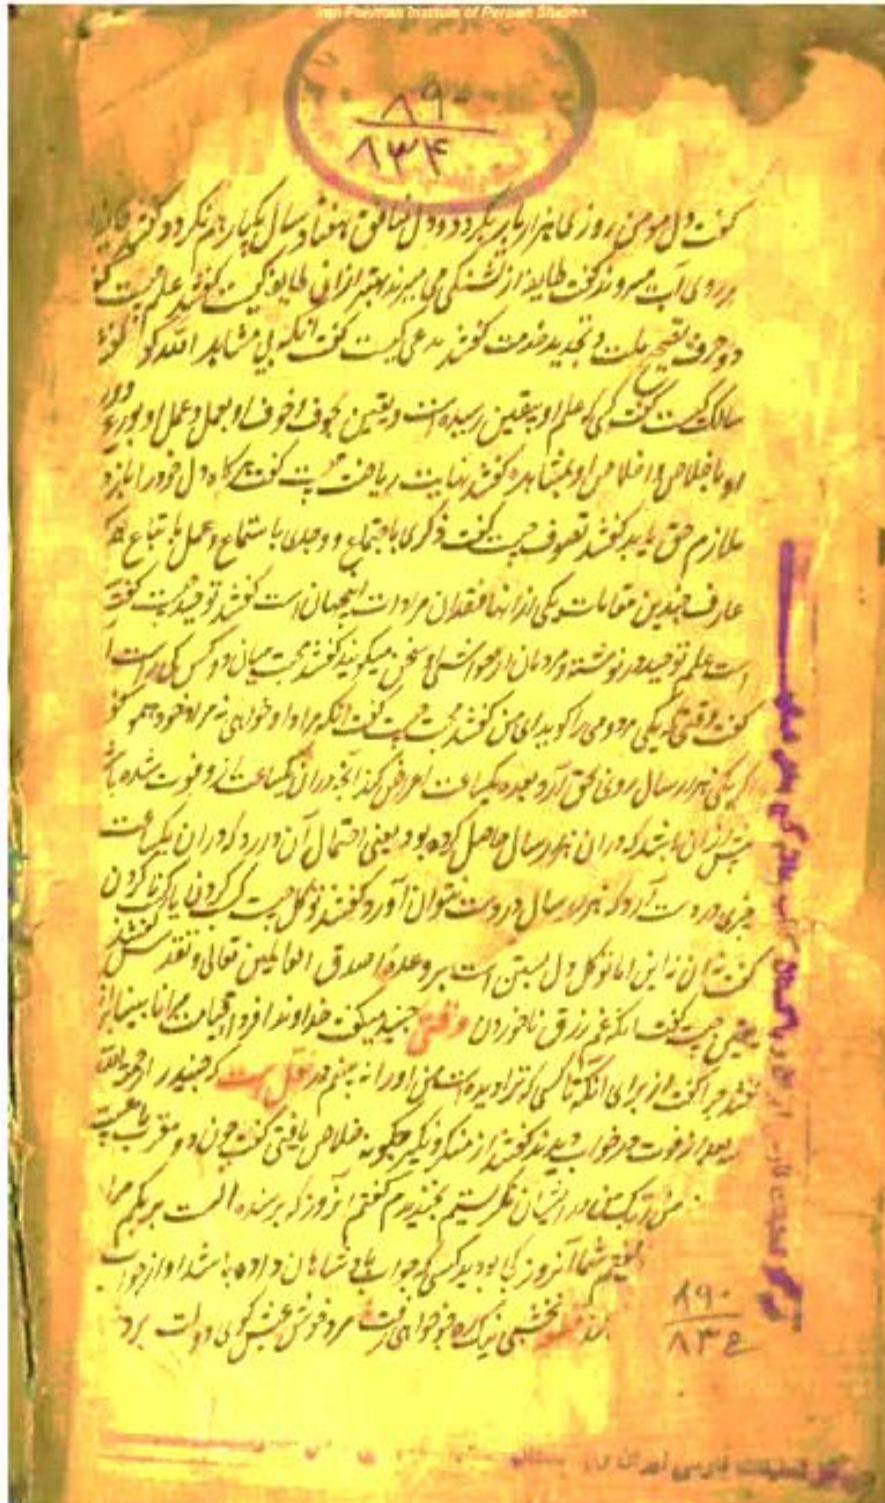 Iran-Pakistan Institute of Persian Studies
۸۹۰
۸۳۴
گفت دل مومن روزی هزار بار بگردد و دل منافق هفتاد سال یکبار هم نگردد گفتند
بر روی آب میروند گفت طایفه از تشنگی می میرند بهتر از آن طایفه کیست گفتند علم چیست
دو حرف تصحیح ملت و تجدید خدمت گفتند مدعی کیست گفت آنکه بی مشاهد الله گو
سالک کیست گفت کسی که علم او بیقین رسیده است و یقین بخوف و خوف او بعمل و عمل او بورع
او باخلاص و اخلاص او بمشاهده گفتند نهایت ریاضت چیست گفت هر گاه دل خود را
ملازم حق یابد گفتند تصوف چیست گفت ذکری باجتماع و وجدی باستماع و عمل باتباع
عارف چندین مقامات یکی از انها فقدان مرادات اینجهان است گفتند توحید چیست گفت
است علم توحید در نوشته و مردمان از حواشی او سخن میگویند گفتند محبت میان دو کس کی راست
گفت وقتی که یکی مر دومی را گوید ای من گفتند محبت چیست گفت انکه مراد او خواهی نه مراد خود
اگر یکی هزار سال روی بحق آرد و بعده یکساعت اعراض کند آنچه دران یکساعت ازو فوت شده
بیش ازان باشد که دران هزار سال حاصل کرده بود یعنی احتمال آن دارد که دران یکساعت
چیزی در دست آرد که هزار سال در دست نتوان آورد گفتند توکل چیست کسب کردن یا کسب ناکردن
گفت نه آن نه این اما توکل دل بستن است بر وعده اصدق القایلین تعالی و تقدس گفتند
یقین چیست گفت انکه غم رزق ناخوردن وقتی جنید میگفت خداوندا فردا قیامت مرا نابینا
گفتند چرا گفت از برای آنکه تا کسی که ترا دیده است من او را نه بینم نقل است که جنید را رحمه الله
بعد از فوت در خواب دیدند گفتند از منکر و نکیر چگونه خلاص یافتی گفت چون دو مقرب
من در ایشان نگریستم بخندیدم گفتم آنروز که پرسنده الست بربکم مرا
گفتم شما آنروز کجا بودید کسی که جواب شاهان داده باشد او از جواب
نخشبی نیک ره خواهی رفت مرد خوش عیش گوی دولت برد
۸۹۰
۸۳۴